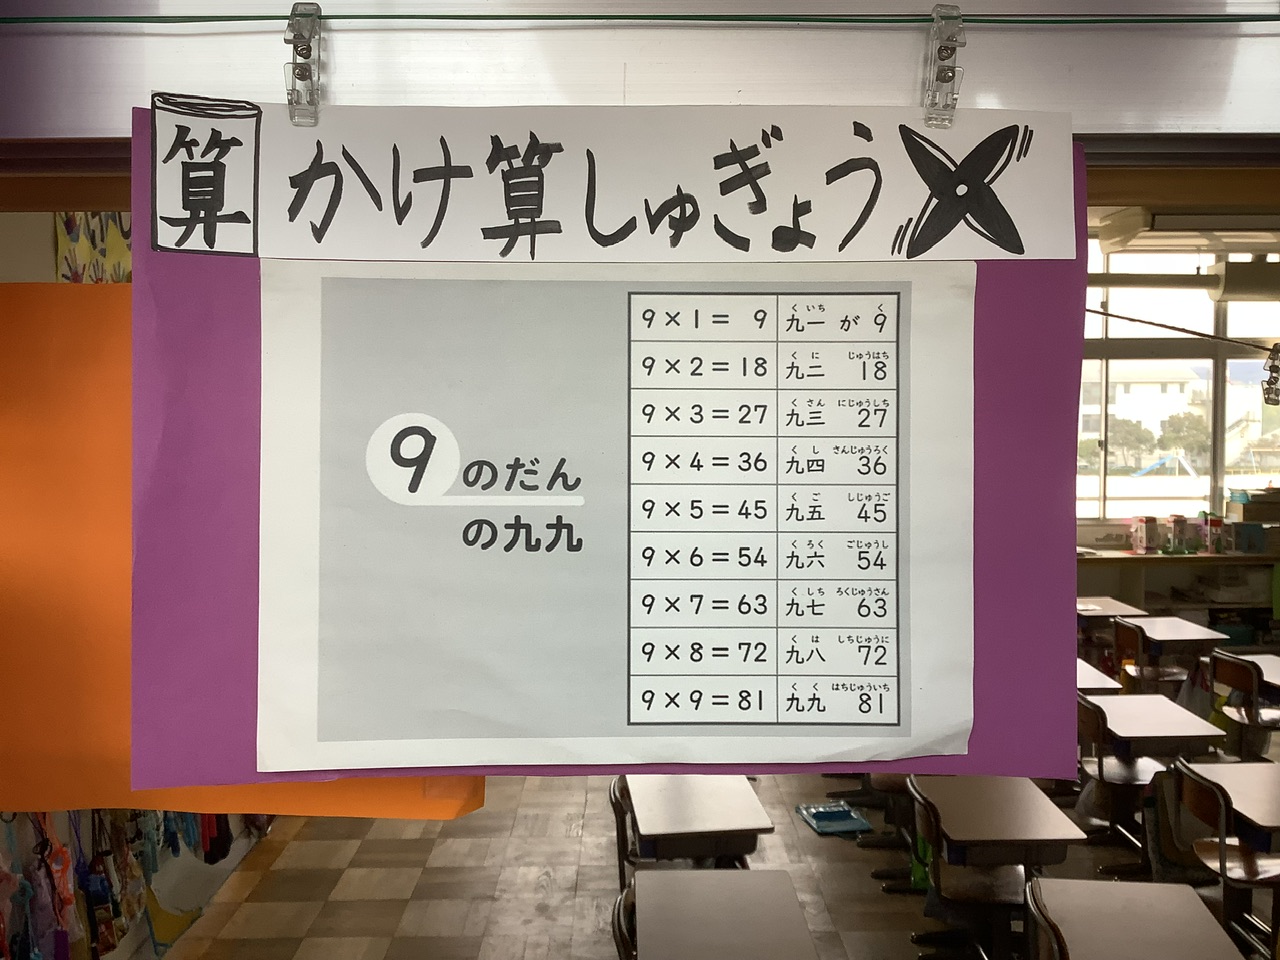 算
かけ算しゅぎょう
9のだん
の九九
9×1= 9 九一 が 9
くいち く
9×2=18 九二 18
くに じゅうはち
9×3=27 九三 27
くさん にじゅうしち
9×4=36 九四 36
くし さんじゅうろく
9×5=45 九五 45
くご しじゅうご
9×6=54 九六 54
くろく ごじゅうし
9×7=63 九七 63
くしち ろくじゅうさん
9×8=72 九八 72
くは しちじゅうに
9×9=81 九九 81
くく はちじゅういち